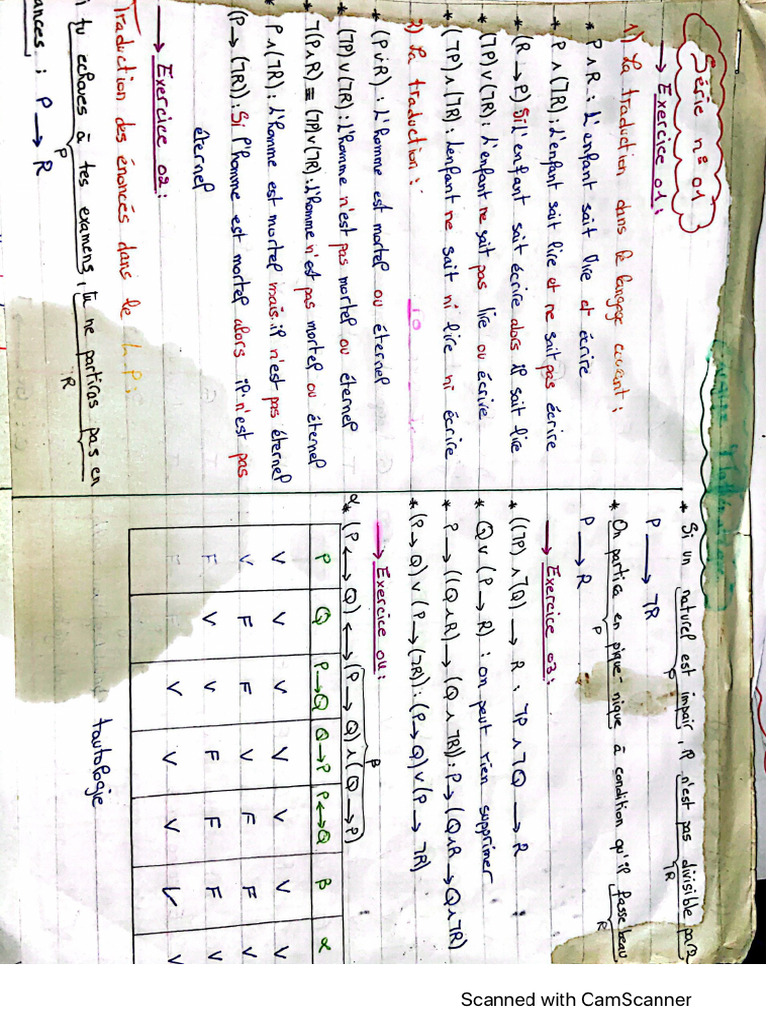 Série n° 01
→ Exercice 01:
1) La traduction dans le langage courant:
* P∧R: L'enfant sait lire et écrire
* P∧(¬R): L'enfant sait lire et ne sait pas écrire
* (R→P) Si l'enfant sait écrire alors il sait lire
* (¬P)∨(¬R): L'enfant ne sait pas lire ou écrire
* (¬P)∧(¬R): L'enfant ne sait ni lire ni écrire
2) La traduction:
* (P∨R): L'homme est mortel ou éternel
(¬P)∨(¬R): L'homme n'est pas mortel ou éternel
* ¬(P∧R) ≡ (¬P)∨(¬R): L'homme n'est pas mortel ou éternel
* P∧(¬R): L'homme est mortel mais il n'est pas éternel
(P→(¬R)): Si l'homme est mortel alors il n'est pas
éternel
→ Exercice 02:
Traduction des énoncés dans le L.P:
i tu échoues à tes examens, tu ne partiras pas en
P R
ances: P → R
* Si un naturel est impair, il n'est pas divisible par 2
P ¬R
P → ¬R
* On partira en pique-nique à condition qu'il fasse beau
P R
P → R
→ Exercice 03:
* ((¬P)∧¬Q) → R: ¬P∧¬Q → R
* Q∨(P→R): on peut rien supprimer
* P→((Q∧R)→(Q∧¬R)): P→(Q∧R→Q∧¬R)
* (P→Q)∨(P→(¬R)): (P→Q)∨(P→¬R)
→ Exercice 04:
α
* (P↔Q)↔(P→Q)∧(Q→P)
β
P Q P→Q Q→P P↔Q β α
V V V V V V V
V F F V F F V
F V V F F F V
F F V V V V V
tautologie
Scanned with CamScanner